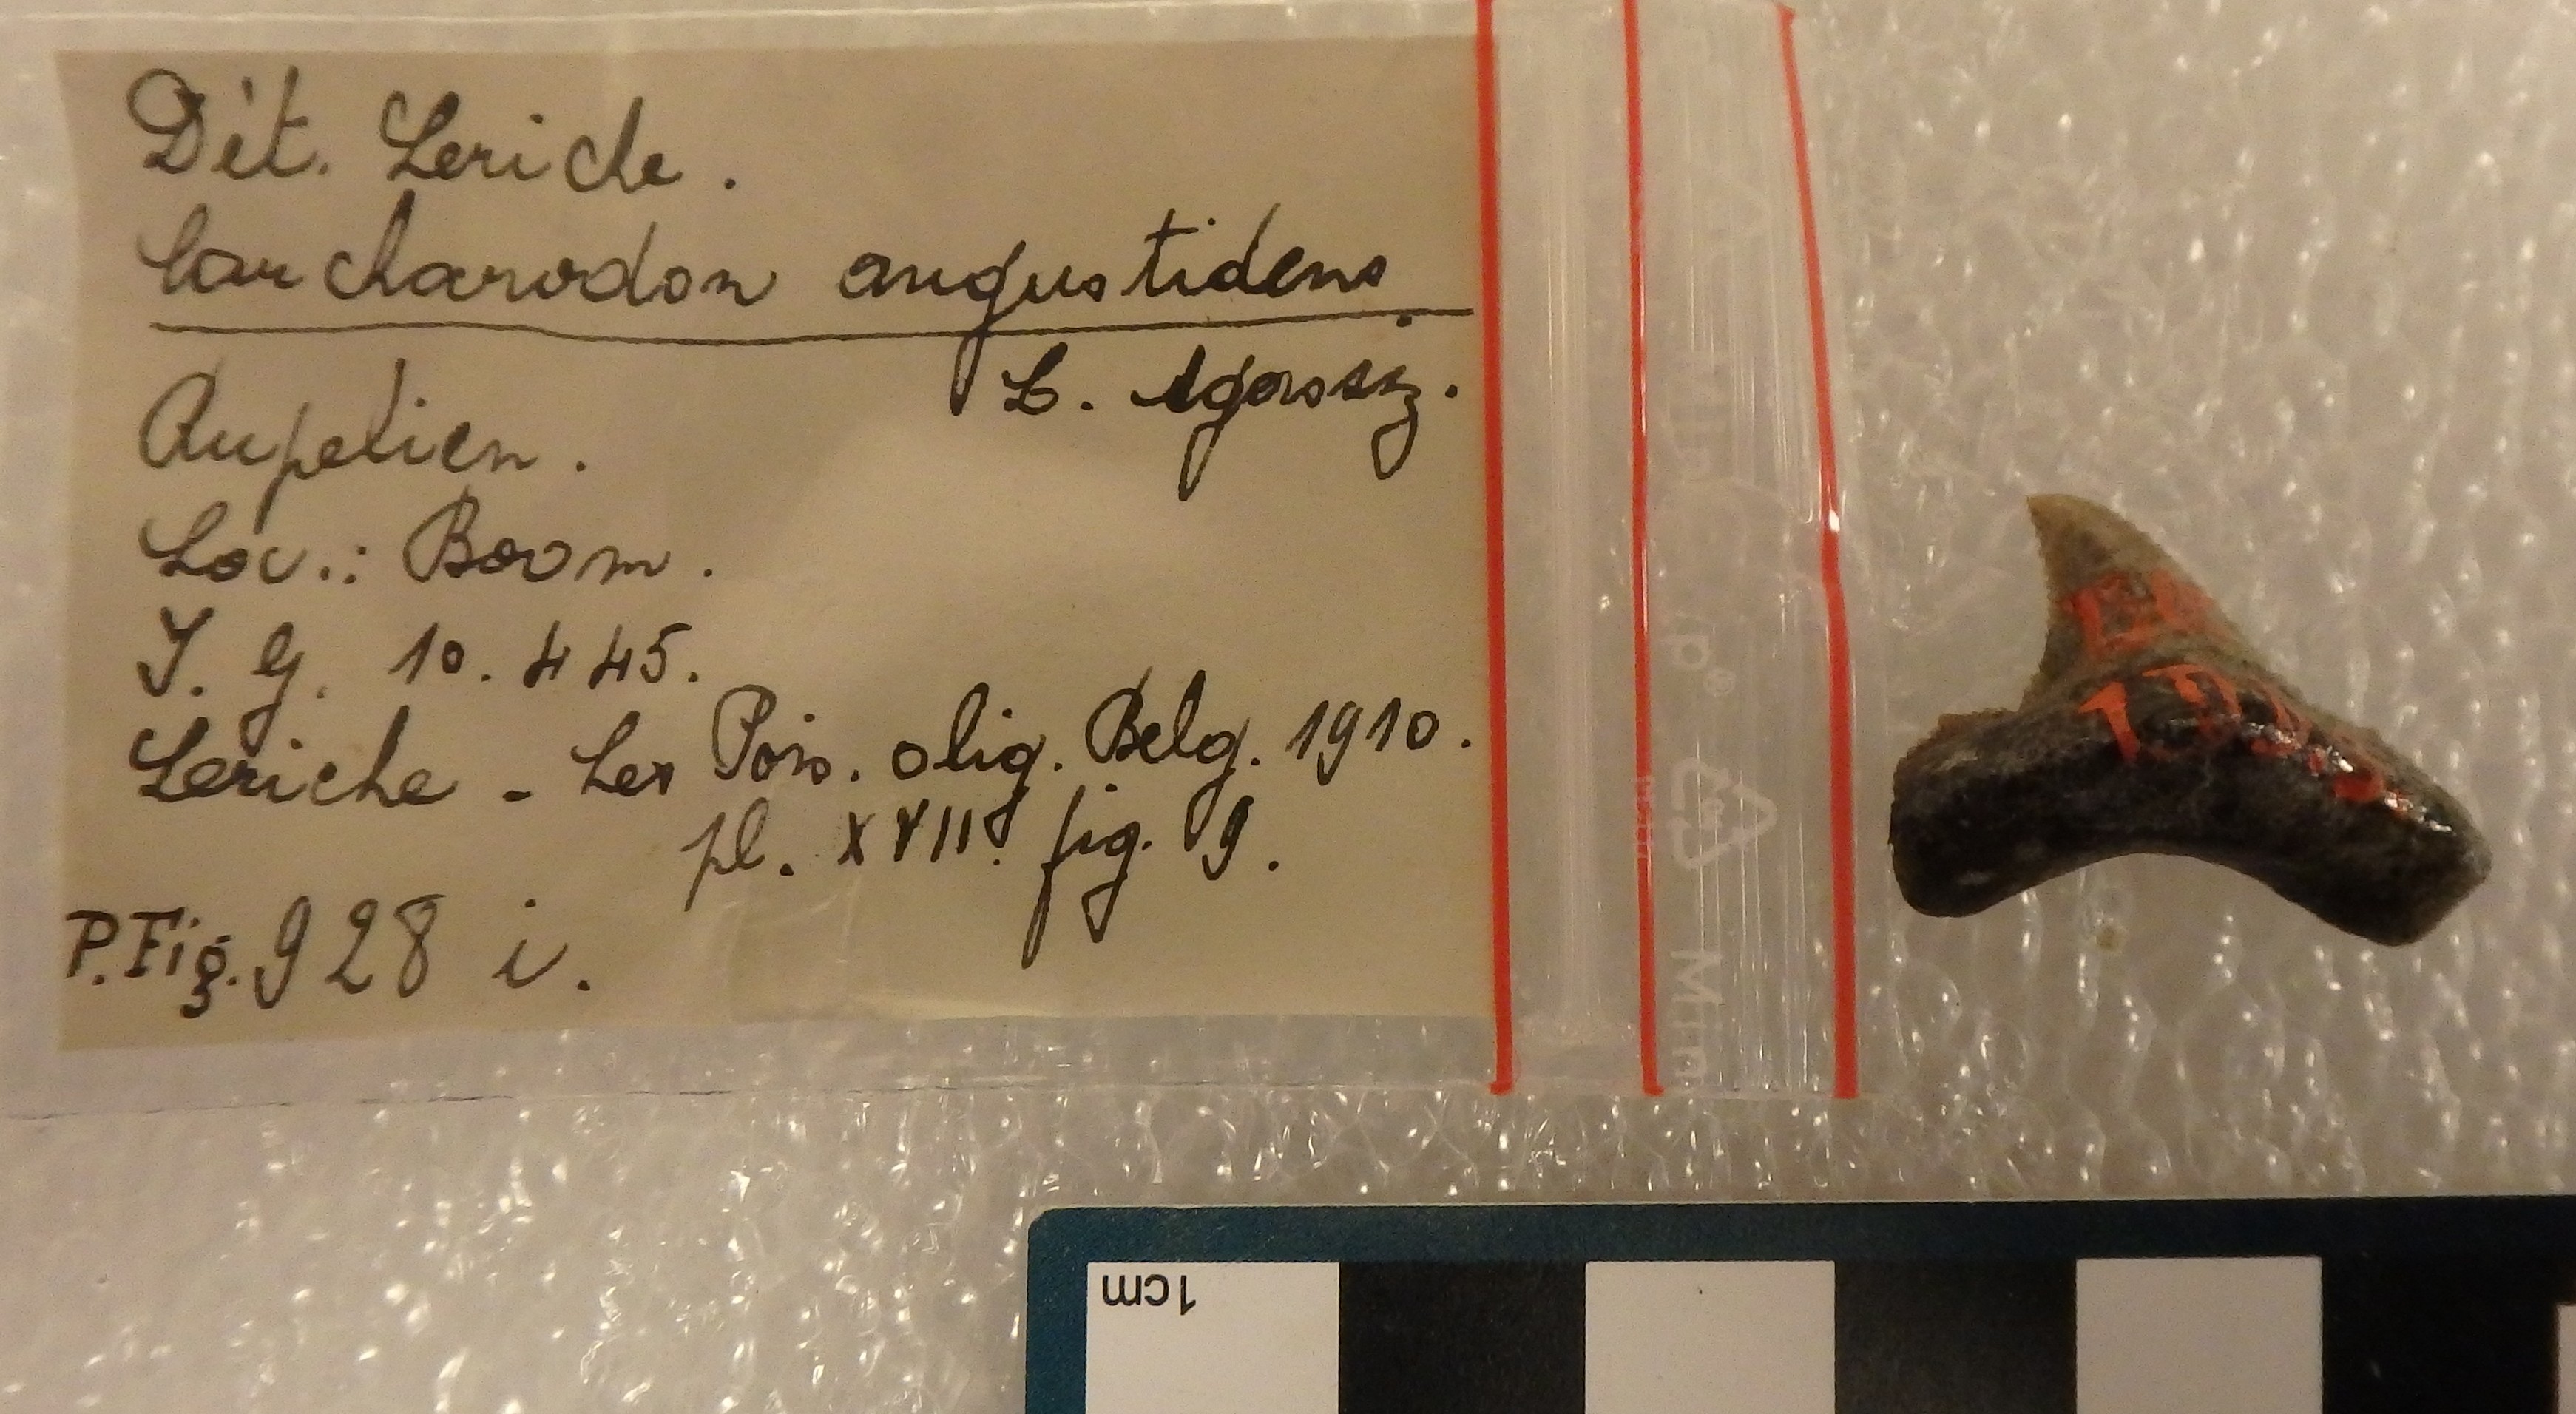 Dét. Leriche.
Carcharodon angustidens
L. Agassiz.
Rupelien.
Loc.: Boom.
I. G. 10.445.
Leriche - Les Pois. olig. Belg. 1910.
pl. XVII. fig. 9.
P.Fig. 928 i.
1cm